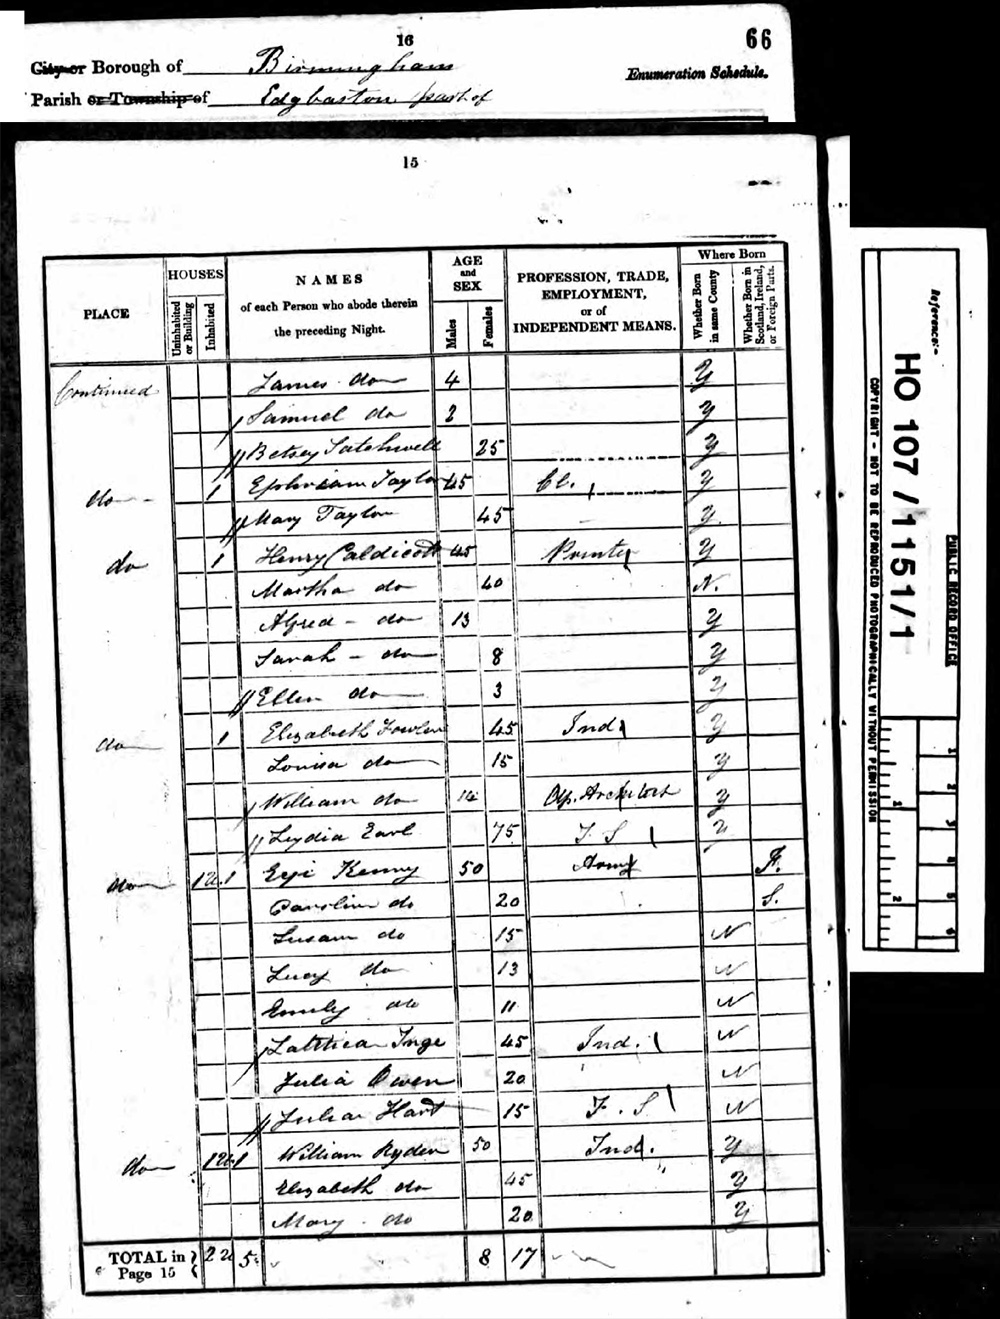 66
16
City or Borough of Birmingham
Enumeration Schedule.
Parish or Township of Edgbaston part of
15
PLACE
HOUSES
Uninhabited or Building
Inhabited
NAMES
of each Person who abode therein
the preceding Night.
AGE
and
SEX
Males
Females
PROFESSION, TRADE,
EMPLOYMENT,
or of
INDEPENDENT MEANS.
Where Born
Whether Born in same County
Whether Born in Scotland, Ireland, or Foreign Parts.
Continued James do 4 Y
Samuel do 2 Y
Betsey Satchwell 25 Y
do 1 Ephriam Taylor 45 Cl. Y
Mary Taylor 45 Y
do 1 Henry Caldicott 45 Printer Y
Martha do 40 N.
Alfred do 13 Y
Sarah do 8 Y
Ellen do 3 Y
do 1 Elizabeth Fowler 45 Ind Y
Louisa do 15 Y
William do 14 Ap. Architect Y
Lydia Earl 75 F S Y
do 1U. 1 Kenny 50 Army F.
Caroline do 20 S.
Susan do 15 N
Lucy do 13 N
Emily do 11 N
Latitica Inge 45 Ind. N
Julia Owen 20 N
Julia Hart 15 F. S N
do 1U. 1 William Ryden 50 Ind. Y
Elizabeth do 45 " Y
Mary do 20 Y
TOTAL in Page 15 2U 5 8 17
Reference:-
HO 107/1151/1
PUBLIC RECORD OFFICE
COPYRIGHT - NOT TO BE REPRODUCED PHOTOGRAPHICALLY WITHOUT PERMISSION
1
2
1
2
3
4
5
6